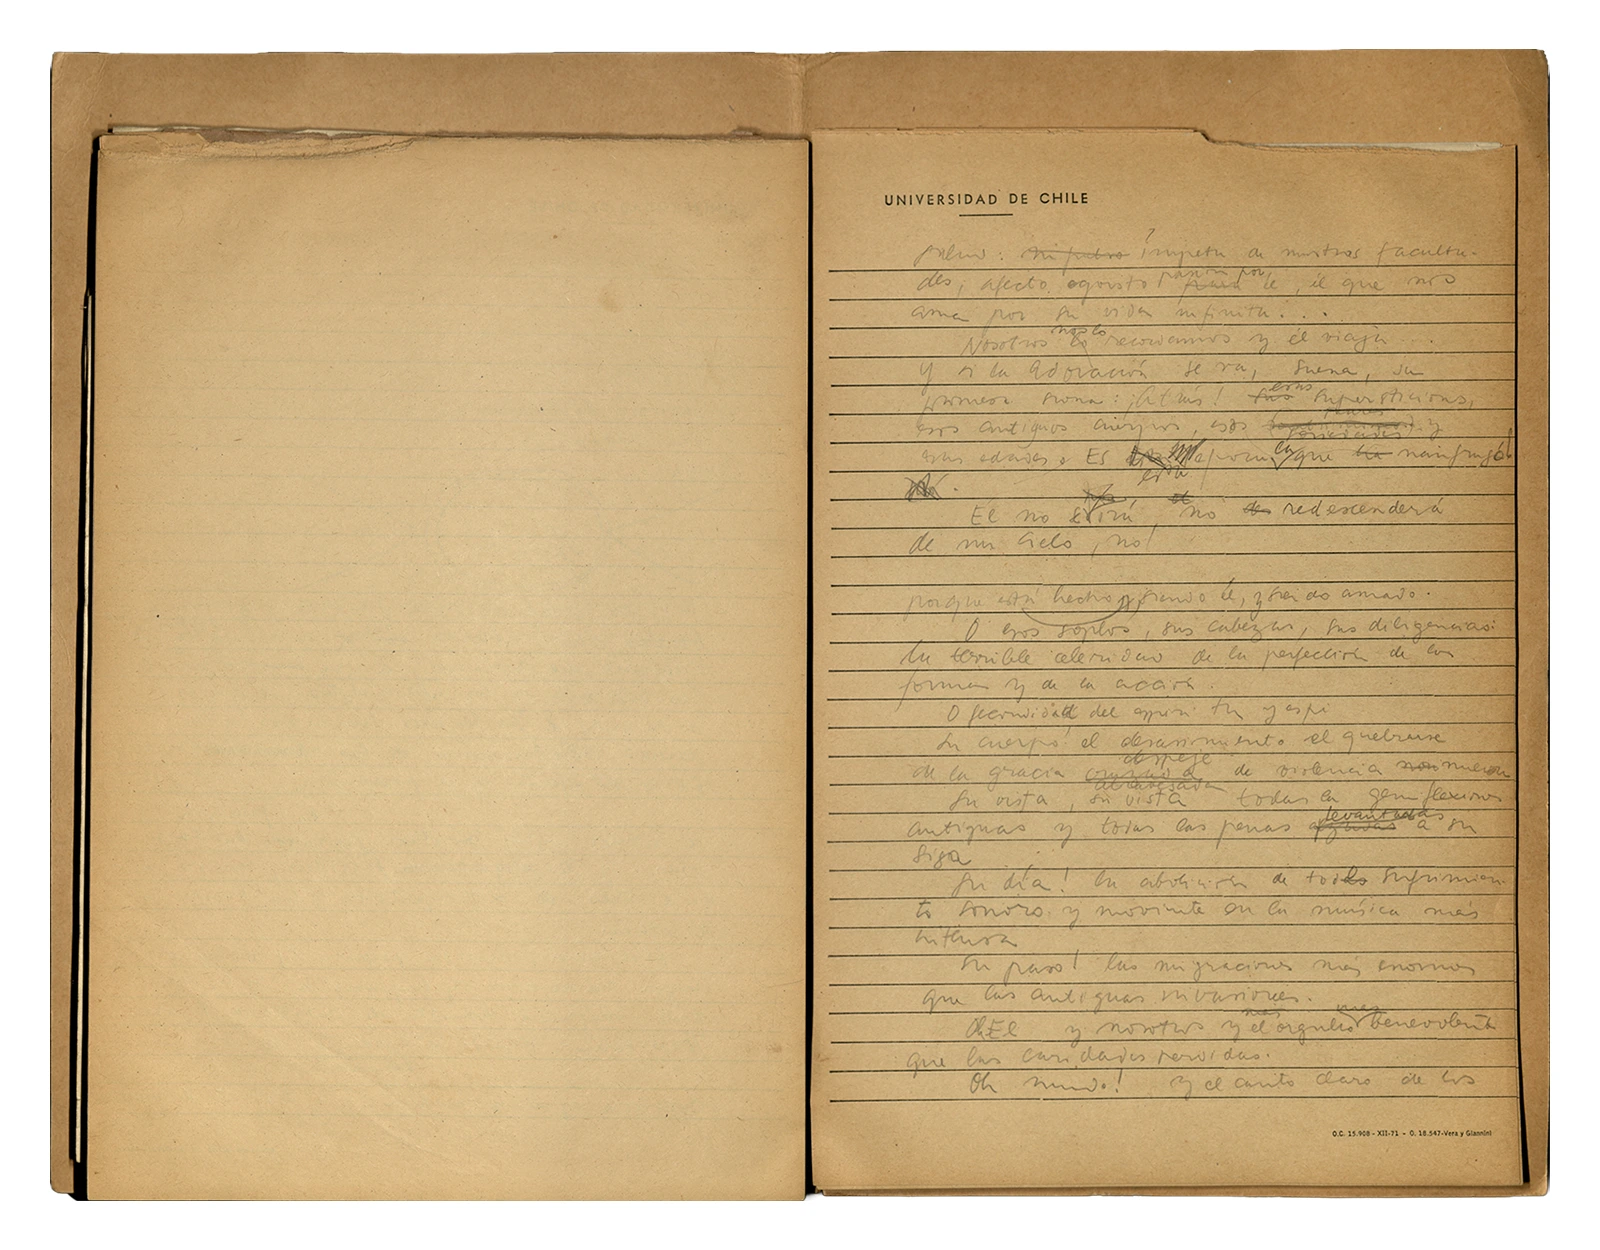 UNIVERSIDAD DE CHILE
ímpetu de nuestras faculta-
des, afecto egoísta pasión por él, él que nos
ama por su vida infinita...
Nosotros nos lo recordamos y él viaja...
Y si la Adoración se va, suena, su
promesa suena: ¡Atrás! esas supersticiones,
esos antiguos cuerpos, esos y
esas edades. Es esta época la que naufragó!
El no se irá, no redescenderá
de un cielo, no!
porque está hecho, siendo él, y siendo amado.
O esos soplos, sus cabezas, sus diligencias:
la terrible celeridad de la perfección de las
formas y de la acción.
O fecundidad del espíritu y
Su cuerpo! el desasimiento el quebrarse
de la gracia atravesada de violencia nueva
Su vista, su vista todas las genuflexiones
antiguas y todas las penas levantadas a su
siga
Su día! la abolición de todo sufrimien-
to sonoro y moviente en la música más
intensa
Su paso! las migraciones más enormes
que las antiguas invasiones.
Oh El y nosotros y el orgullo más benevolente
que las caridades perdidas.
Oh mundo! y el canto claro de los
O.C. 15.908 - XII-71 - O. 18.547-Vera y Giannini